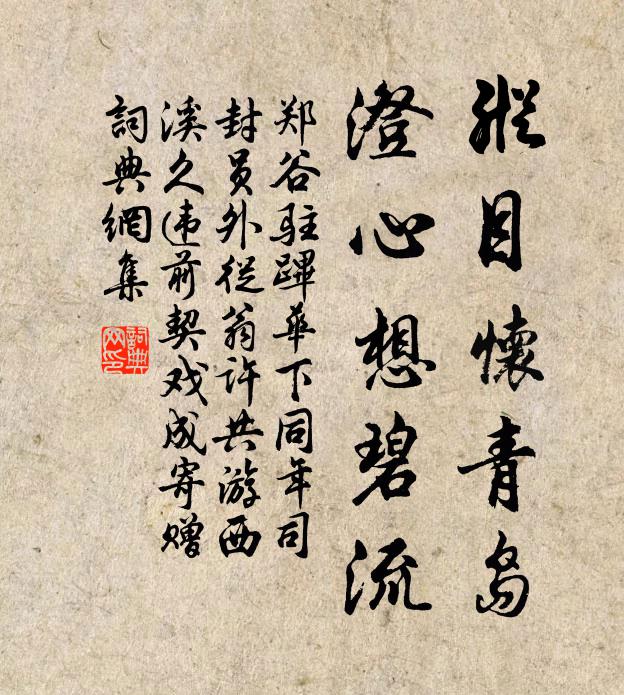 縱目懷青島
澄心想碧流
郑谷驻蹕華下同年司
封员外從翁许共游西
溪久违前契戏成寄赠
詞典網集
詞典網印